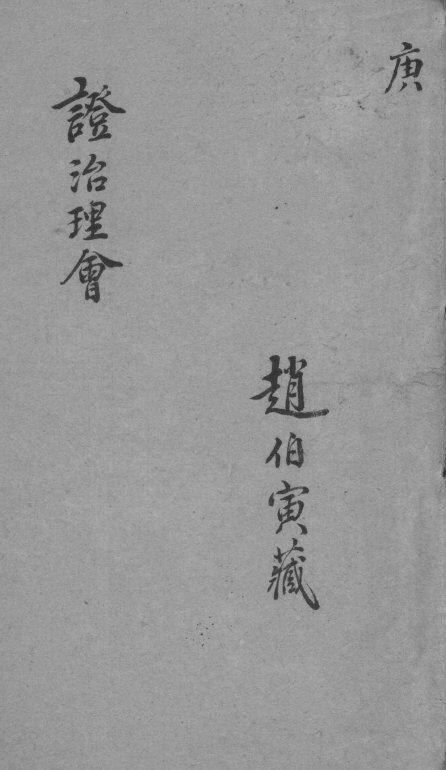 庚
趙伯寅藏
證治理會